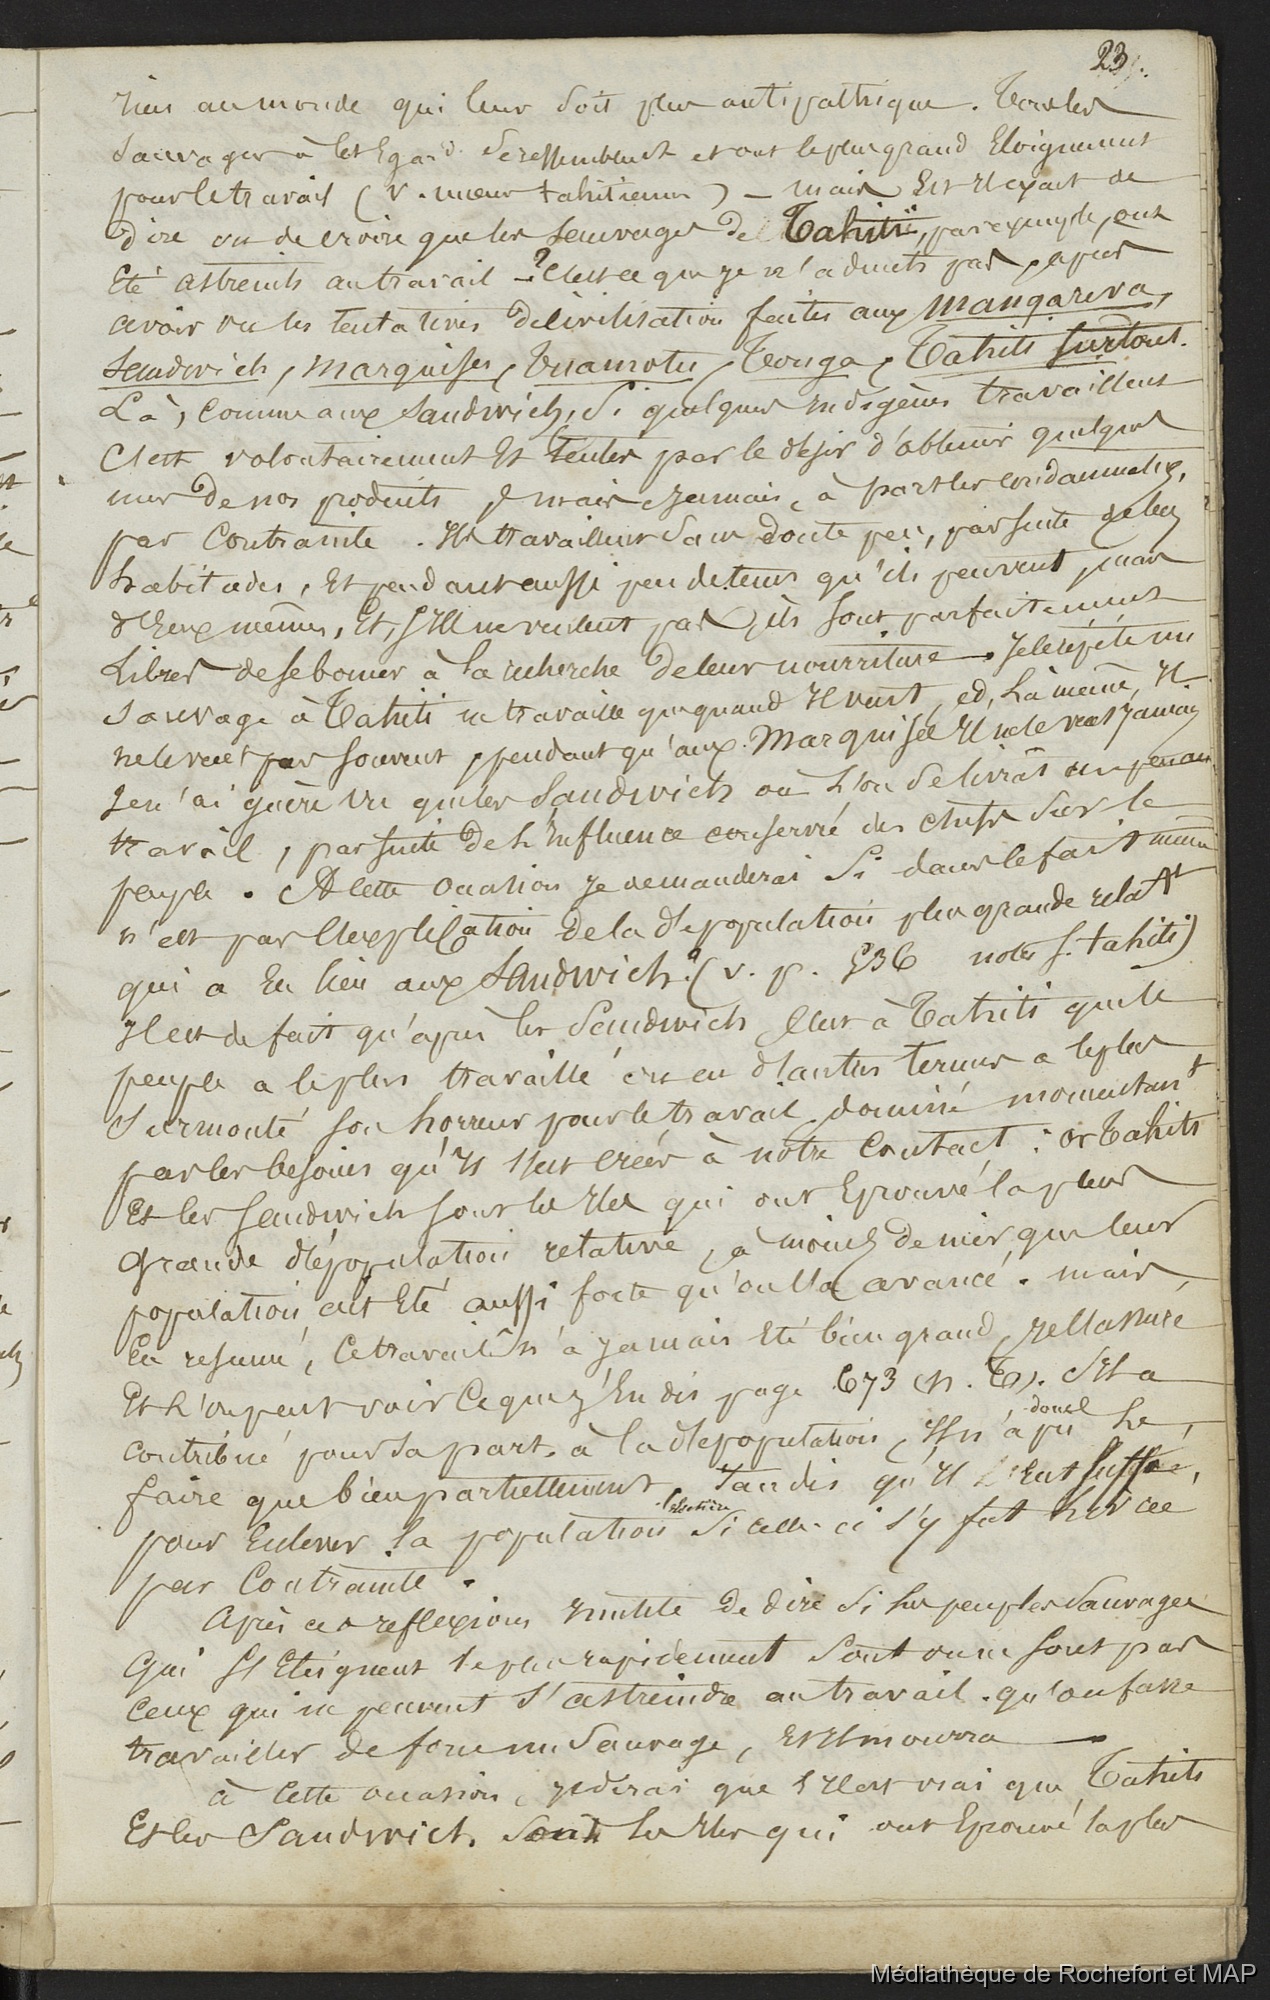 23.
rien au monde qui leur soit plus antipathique. Tous les
sauvages à cet égard se ressemblent et ont le plus grand éloignement
pour le travail (v. mœurs tahitiennes) – mais est il exact de
dire ou de croire que les sauvages de Tahiti, par exemple, ont
été astreints au travail –? C'est ce que je n'admets pas, après
avoir vu les tentatives de civilisation faites aux Mangareva,
Sandwich, Marquises, Tuamotu, Tonga, Tahiti surtout.
Là, comme aux Sandwich, si quelques indigènes travaillent
c'est volontairement et tentés par le désir d'obtenir quelques
uns de nos produits, mais jamais, à part les condamnés,
par contrainte. Ils travaillent sans doute peu, par suite de leurs
habitudes, et pendant aussi peu de tems qu'ils peuvent, mais
d'eux mêmes, et, s'ils ne veulent pas, ils sont parfaitement
libres de se borner à la recherche de leur nourriture. Je le répète un
sauvage à Tahiti ne travaille que quand il veut, et, là même, il
ne le veut pas souvent, pendant qu'aux Marquises il ne le veut jamais
Je n'ai guère vu que les Sandwich où l'on se livrât un peu au
travail, par suite de l'influence conservée des chefs sur le
peuple. A cette occasion je demanderai si dans le fait même
n'est pas l'explication de la dépopulation plus grande relatt
qui a eu lieu aux Sandwich? (v. p. 536 notes s. tahiti)
Il est de fait qu'après les Sandwich c'est à Tahiti que le
peuple a le plus travaillé ou en d'autres termes a le plus
surmonté son horreur pour le travail, dominé momentant
par les besoins qu'il s'est créés à notre contact: or Tahiti
et les Sandwich sont les îles qui ont éprouvé la plus
grande dépopulation relative, à moins de nier que leur
population ait été aussi forte qu'on l'a avancé. mais,
en résumé, ce travail n'a jamais été bien grand, je l'assure
et l'on peut voir ce que j'en dis page 673 (n. T). S'il a
contribué pour sa part à la dépopulation, il n'a donc pu le
faire que bien partiellement, tandis qu'il eut suffi,
pour enlever la population entière si celle-ci s'y fut livrée
par contrainte.
Après ces réflexions inutile de dire si les peuples sauvages
qui s'éteignent le plus rapidement sont ou ne sont pas
ceux qui ne peuvent s'astreindre au travail. qu'on fasse
travailler de force un sauvage, et il mourra —
à cette occasion, je dirai que s'il est vrai que Tahiti
et les Sandwich sont les îles qui ont éprouvé la plus
Médiathèque de Rochefort et MAP